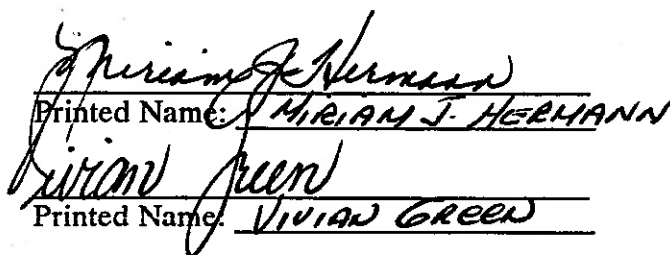 Miriam J. Hermann
Printed Name: MIRIAM J. HERMANN
Vivian Green
Printed Name: VIVIAN GREEN